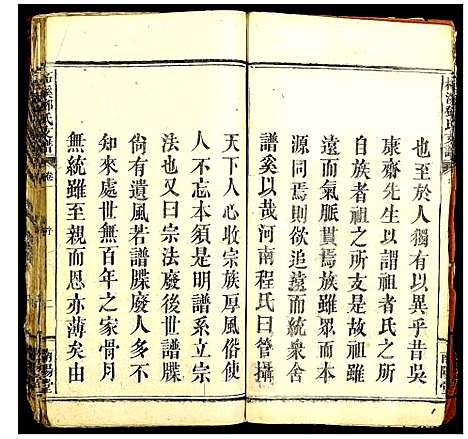 也至於人獨有以異乎昔吳
康齋先生以謂祖者氏之所
自族者祖之所支是故祖雖
遠而氣脈貫焉族雖眾而根
源同焉則欲追遠而統衆舍
譜奚以哉河南程氏曰管攝
天下人心收宗族厚風俗使
人不忘本須是明譜系立宗
法也又曰宗法廢後世譜牒
尚有遺風若譜牒廢人多不
知來處世無百年之家骨肉
無統雖至親而恩亦薄矣由
氏支譜
卷
南陽堂